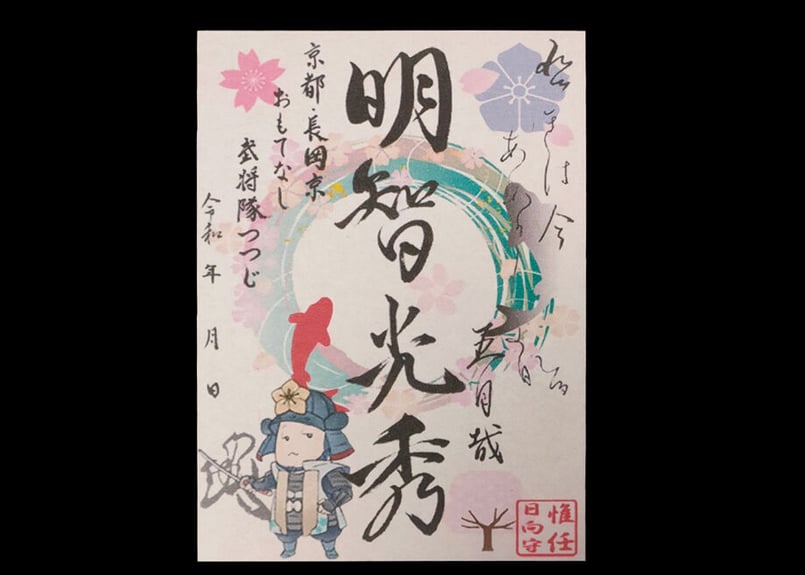 きは今
あ
五月哉
明智光秀
京都・長岡京
おもてなし
武将隊つつじ
令和 年 月 日
惟任
日向守